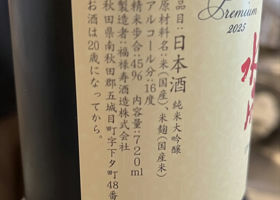 Premium
2025
品目：日本酒 純米大吟醸
原材料名：米（国産）、米麹（国産米）
アルコール分：16度
精米歩合：45％ 内容量：720ml
製造者：福禄寿酒造株式会社
秋田県南秋田郡五城目町字下タ町48番
お酒は20歳になってから。